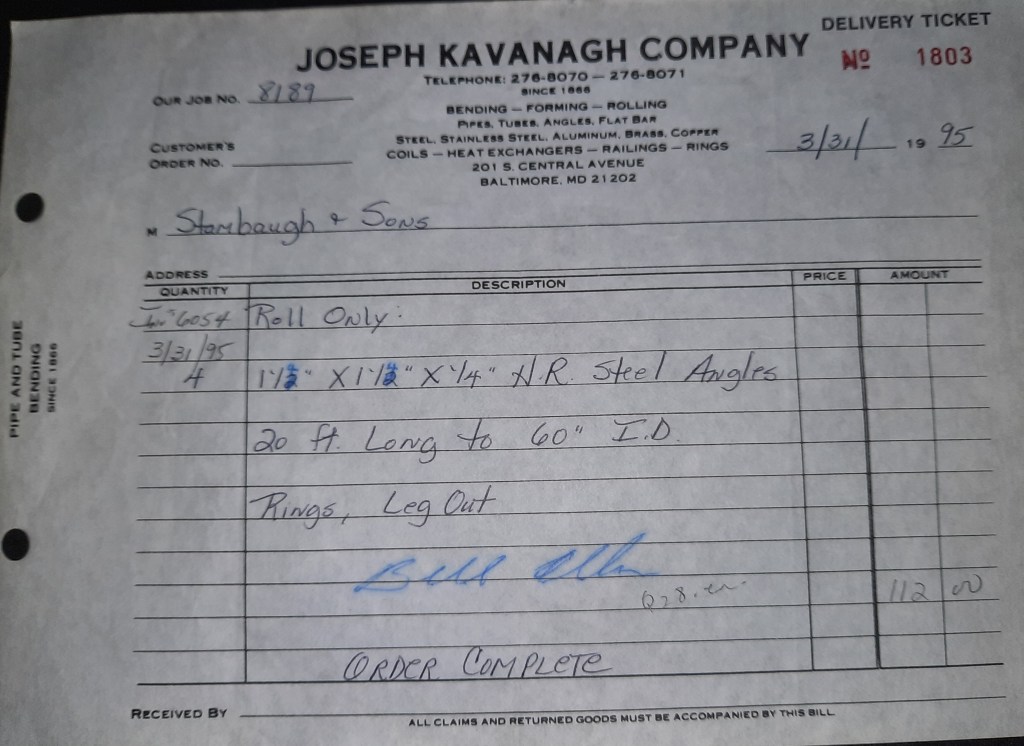 DELIVERY TICKET
JOSEPH KAVANAGH COMPANY
No 1803
TELEPHONE: 276-8070 — 276-8071
SINCE 1866
OUR JOB NO. 8189
BENDING — FORMING — ROLLING
PIPES, TUBES, ANGLES, FLAT BAR
STEEL, STAINLESS STEEL, ALUMINUM, BRASS, COPPER
CUSTOMER'S
ORDER NO.
COILS — HEAT EXCHANGERS — RAILINGS — RINGS
3/31/ 19 95
201 S. CENTRAL AVENUE
BALTIMORE, MD 21202
M Stambaugh & Sons
ADDRESS
QUANTITY DESCRIPTION PRICE AMOUNT
6054 Roll Only:
3/31/95
4 1 1/2" X 1 1/2" X 1/4" H.R. Steel Angles
20 ft. Long to 60" I.D.
Rings, Leg Out
Bill
112 00
ORDER COMPLETE
RECEIVED BY
ALL CLAIMS AND RETURNED GOODS MUST BE ACCOMPANIED BY THIS BILL
PIPE AND TUBE
BENDING
SINCE 1866